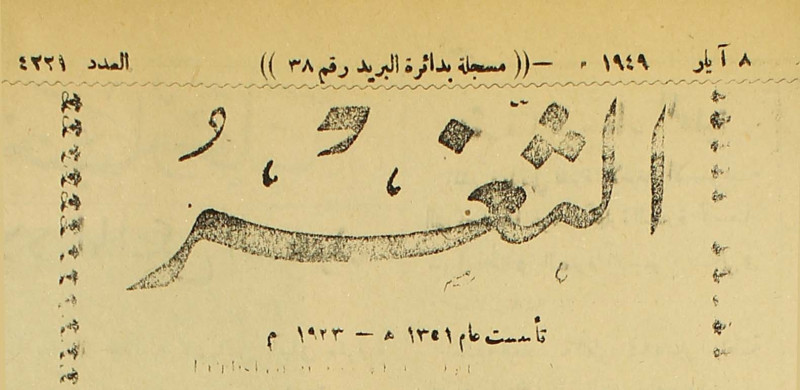 ٨ آيار ١٩٤٩ — (( مسجلة بدائرة البريد رقم ٣٨ )) العدد ٤٢٢١
الثغر
تأسست عام ١٣٤١ ه — ١٩٢٣ م